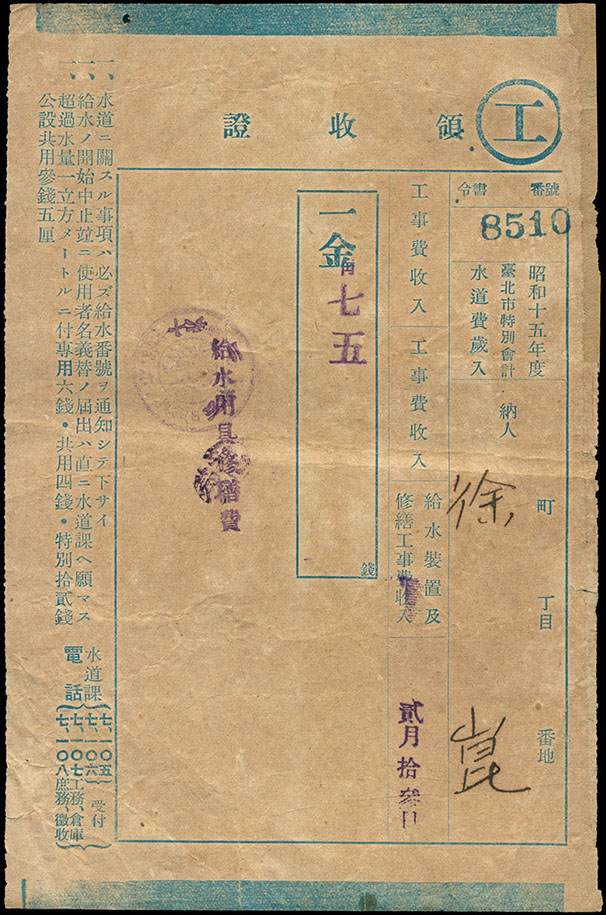 工
領收證
令書番號
8510
昭和十五年度
臺北市特別會計
水道費歲入
納人
町
丁目
番地
徐
崑
工事費收入
工事費收入
給水裝置及
修繕工事費收入
貳月拾參日
一金
七五
錢
給水用具修繕費
一、水道ニ關スル事項ハ必ズ給水番號ヲ通知シテ下サイ
一、給水ノ開始中止竝ニ使用者名義替ノ屆出ハ直ニ水道課ヘ願マス
一、超過水量一立方メートルニ付專用六錢・共用四錢・特別拾貳錢
公設共用參錢五厘
水道課
電話
七、一〇五
七、一〇六
受付
七、一〇七工務、倉庫
七、一〇八庶務、徵收